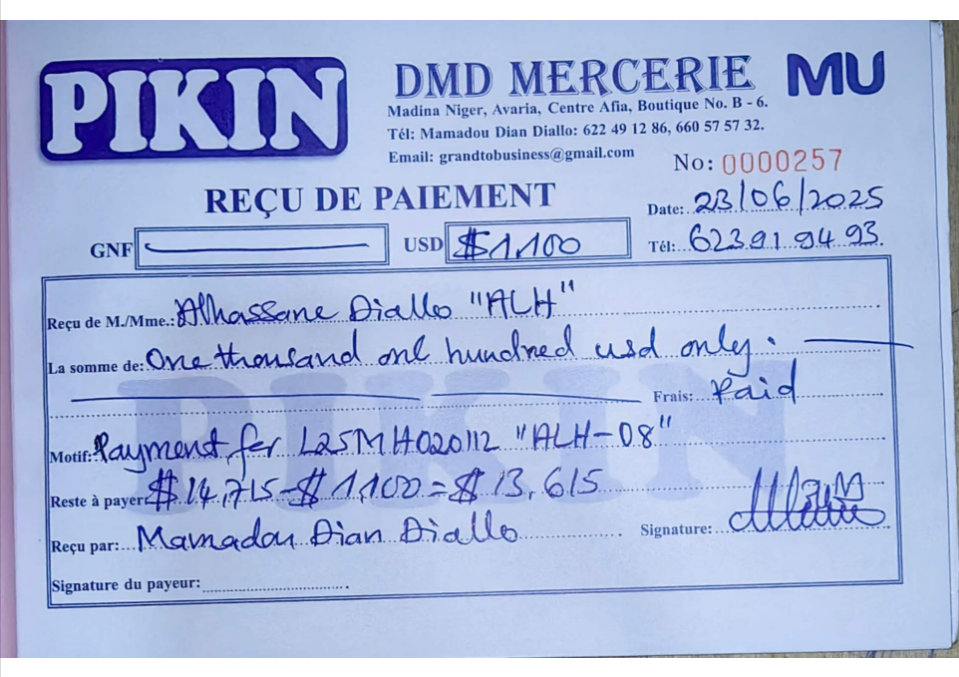 PIKIN
DMD MERCERIE
MU
Madina Niger, Avaria, Centre Afia, Boutique No. B - 6.
Tél: Mamadou Dian Diallo: 622 49 12 86, 660 57 57 32.
Email: grandtobusiness@gmail.com
No: 0000257
REÇU DE PAIEMENT
Date: 23/06/2025
GNF
USD $1,100
Tél: 623 91 94 93.
Reçu de M./Mme.: Alhassane Diallo "ALH"
La somme de: One thousand one hundred usd only.
Frais: Paid
PIKIN
Motif: Payment for L25MH020112 "ALH-08"
Reste à payer $14,715-$1,100=$13,615
Reçu par: Mamadou Dian Diallo
Signature:
Signature du payeur: